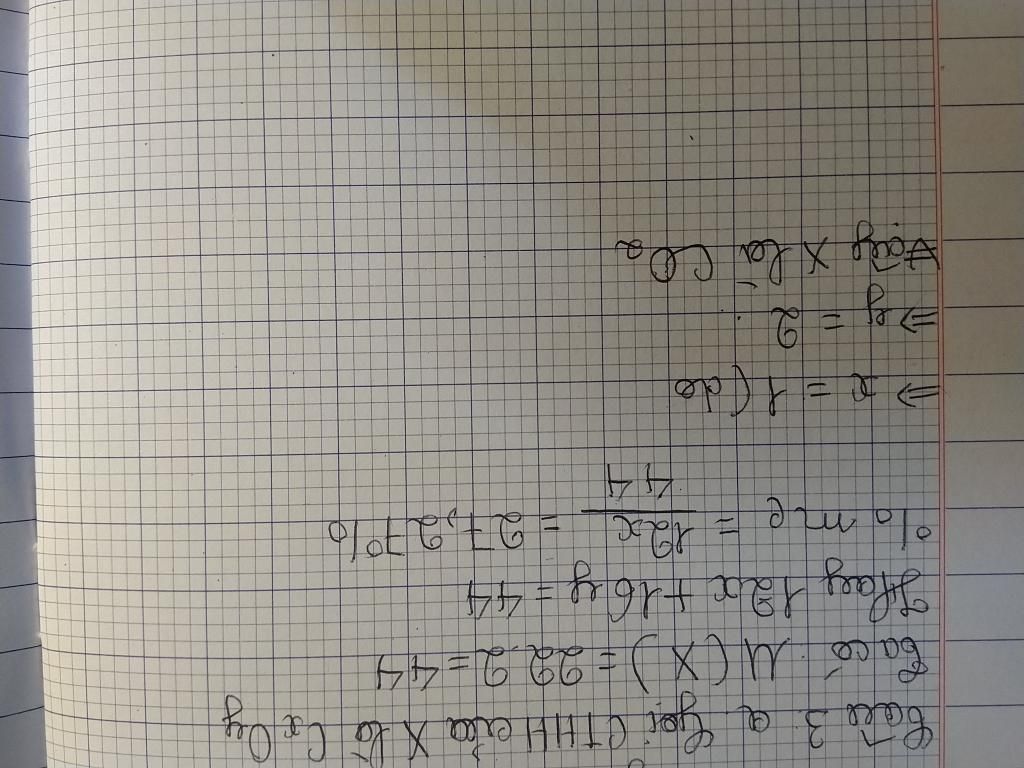 Bài 3. a Gọi CTHH của X là CxOy
Ta có: M(X) = 22.2 = 44
Hay 12x + 16y = 44
% mC = 12x/44 = 27,27%
⇒ x = 1 (do
⇒ y = 2
Vậy X là CO2